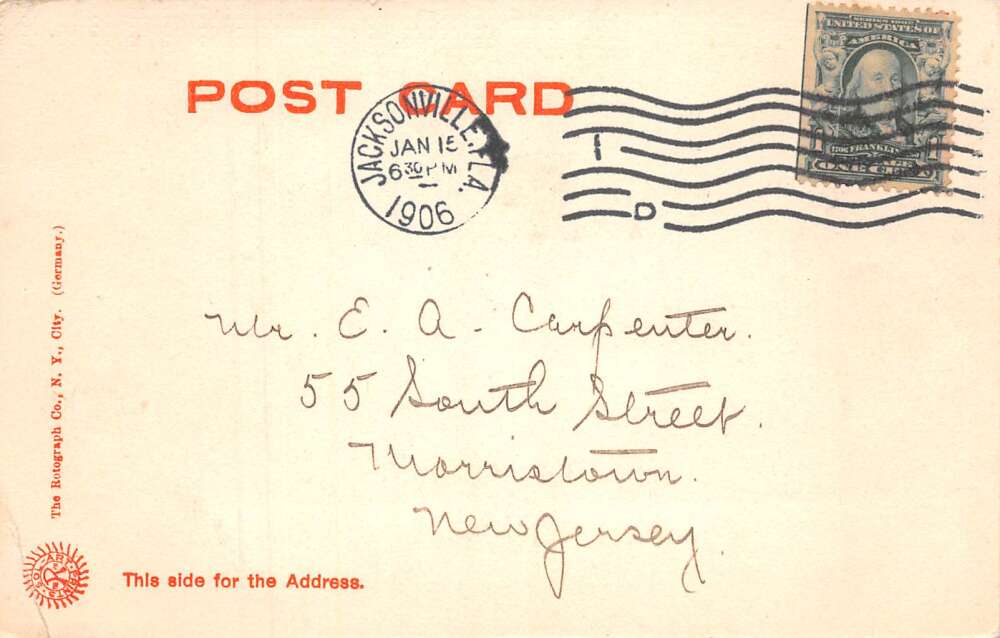 POST CARD
JACKSONVILLE, FLA.
JAN 15
6 30 PM
1906
I
D
SERIES 1902
UNITED STATES OF
AMERICA
FRANKLIN
1 ONE CENT 1
Mr. E. A. Carpenter.
55 South Street.
Morristown.
New Jersey.
The Rotograph Co., N. Y., City. (Germany.)
SOL-ART PRINTS
This side for the Address.